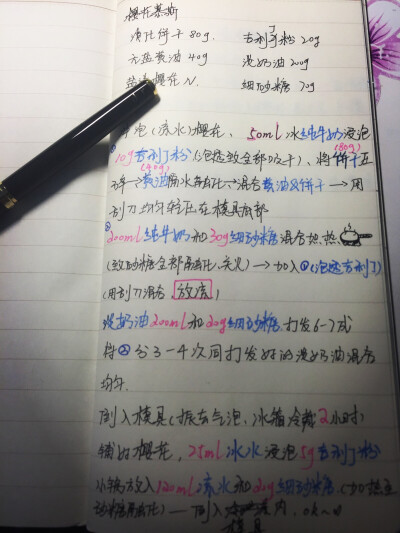 樱花慕斯
消化饼干80g. 吉利丁粉20g
无盐黄油40g 淡奶油200g
盐渍樱花N. 细砂糖70g
泡(凉水)樱花, 50ml冰纯牛奶浸泡
10g吉利丁粉(泡透致全部吸干), 将饼干压(80g)
碎→黄油隔水融化→混合黄油&饼干→用(40g)
刮刀均匀铺压在模具底部
200ml纯牛奶和30g细砂糖混合加热
(致砂糖全部融化,关火)→加入①(泡透吉利丁)
(用刮刀混合,放凉)
淡奶油200ml和20g细砂糖打发6-7成
将②分3-4次同打发好的淡奶油混合
均匀.
倒入模具(振去气泡,冰箱冷藏2小时)
铺好樱花, 25ml冰水浸泡5g吉利丁粉
小锅放入120ml凉水和20g细砂糖(加热至
砂糖融化)——倒入模具内, ok~